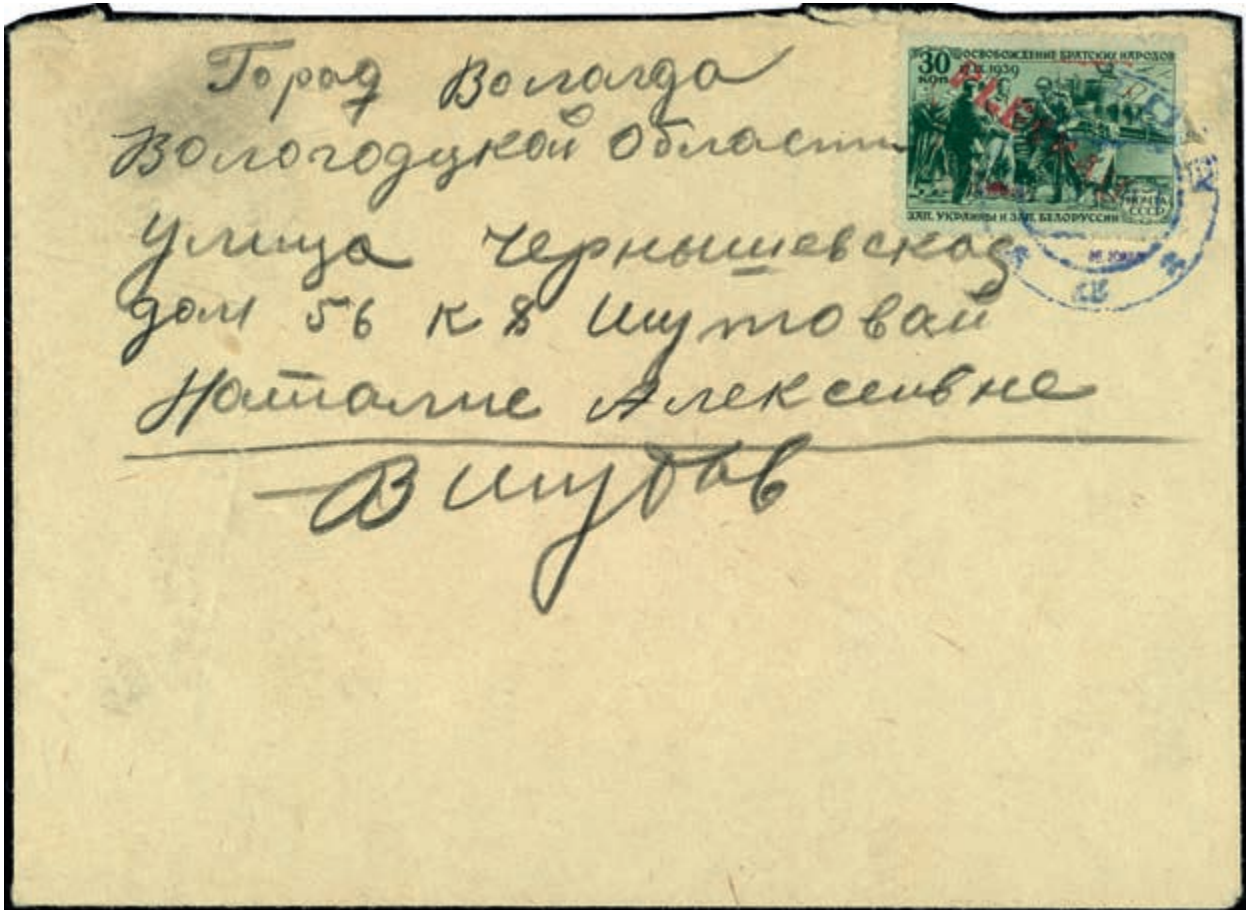 Город Вологда
Вологодцкой Области
Улица Чернышевская
дом 56 к 8 Шутовай
Наталие Алексеивне
В Шутов
30 ОСВОБОЖДЕНИЕ БРАТСКИХ НАРОДОВ
КОП 17.IX.1939
ЗАП. УКРАИНЫ И ЗАП. БЕЛОРУССИИ
ПОЧТА
СССР